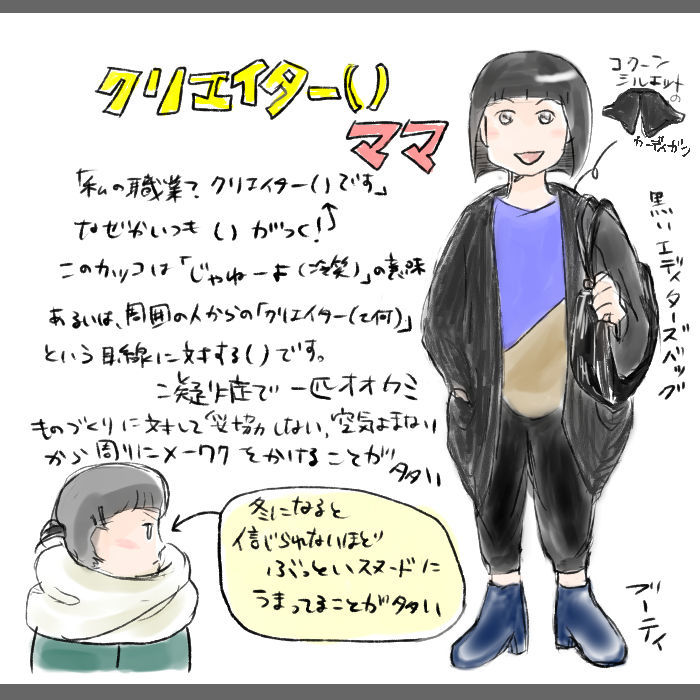 クリエイター()
ママ
コクーン
シルエットの
カーディガン
「私の職業? クリエイター()です」
なぜかいつも () がつく!
このカッコは「じゃねーよ(冷笑)」の意味
あるいは、周囲の人からの「クリエイター(て何)」
という目線に対する()です。
凝り性で 一匹オオカミ
ものづくりに対して妥協しない、空気よまない
から周りにメーワクをかけることが
多い
黒いエディターズバッグ
冬になると
信じられないほど
ぶっといスヌードに
うまってることが多い
ブーティ